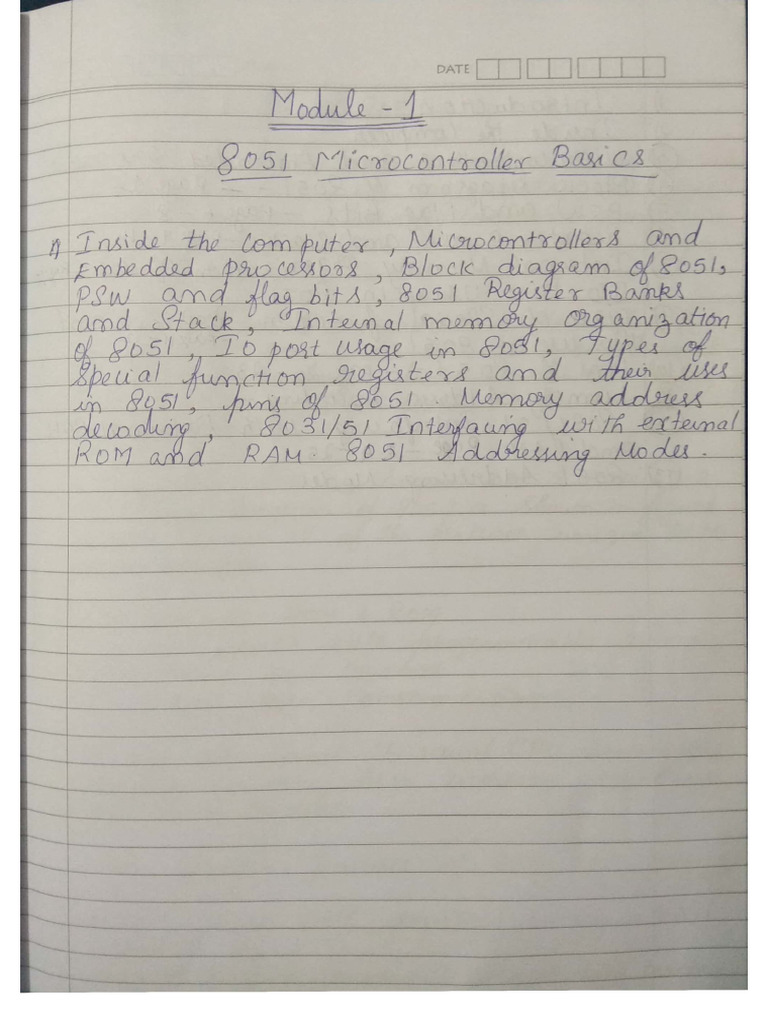 DATE
Module - 1
8051 Microcontroller Basics
1) Inside the computer, Microcontrollers and
Embedded processors, Block diagram of 8051,
PSW and flag bits, 8051 Register Banks
and Stack, Internal memory organization
of 8051, IO port usage in 8051, Types of
special function registers and their uses
in 8051, pins of 8051. Memory address
decoding, 8031/51 Interfacing with external
ROM and RAM. 8051 Addressing Modes.